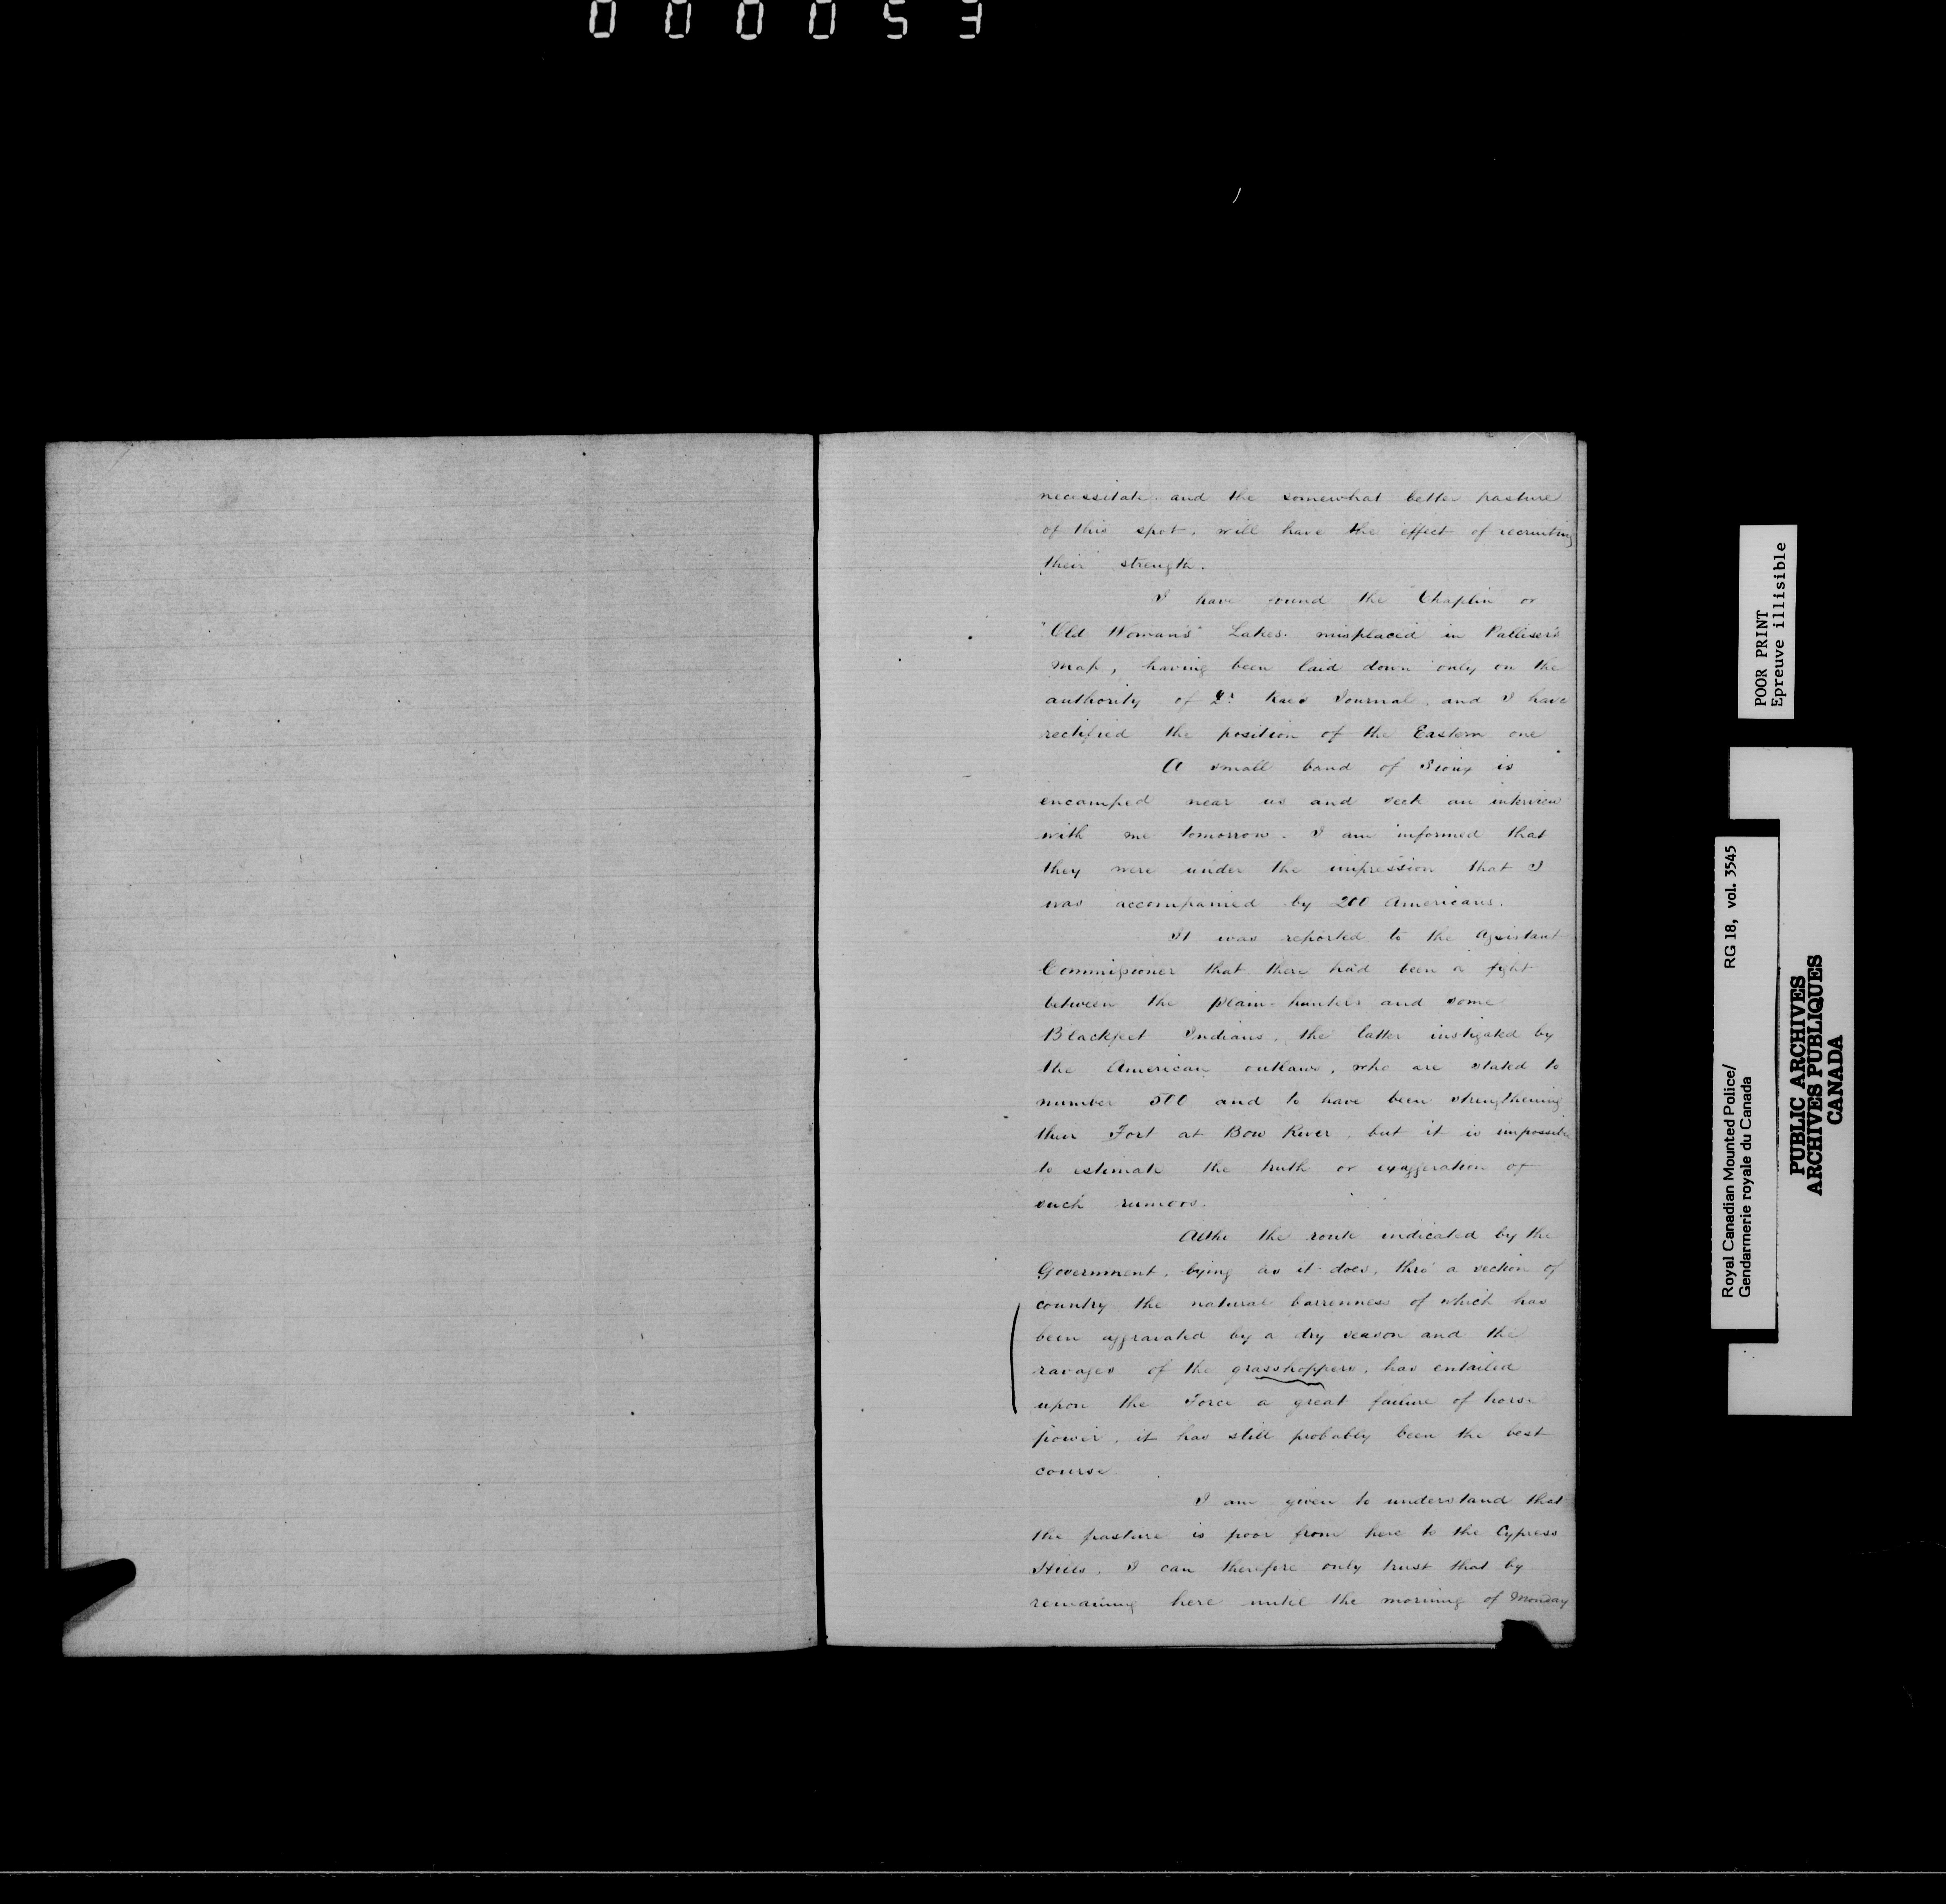 000053
necessitate. and the somewhat better pasture
of this spot, will have the effect of recruiting
their strength.
I have found the "Chaplin" or
"Old Woman's" Lakes. misplaced in Palliser's
map, having been laid down only on the
authority of Dr. Rae's Journal, and I have
rectified the position of the Eastern one
A small band of Sioux is
encamped near us and seek an interview
with me tomorrow. I am informed that
they were under the impression that I
was accompanied by 200 Americans.
It was reported to the Assistant
Commissioner that there had been a fight
between the plain-hunters and some
Blackfeet Indians, the latter instigated by
the American outlaws, who are stated to
number 500 and to have been strengthening
their Fort at Bow River, but it is impossible
to estimate the truth or exaggeration of
such rumors.
Altho the route indicated by the
Government, lying as it does, thro' a section of
country the natural barrenness of which has
been aggravated by a dry season and the
ravages of the grasshoppers, has entailed
upon the Force a great failure of horse
power, it has still probably been the best
course
I am given to understand that
the pasture is poor from here to the Cypress
Hills, I can therefore only trust that by
remaining here until the morning of Monday
POOR PRINT
Epreuve illisible
Royal Canadian Mounted Police/ RG 18, vol. 3545
Gendarmerie royale du Canada
PUBLIC ARCHIVES
ARCHIVES PUBLIQUES
CANADA